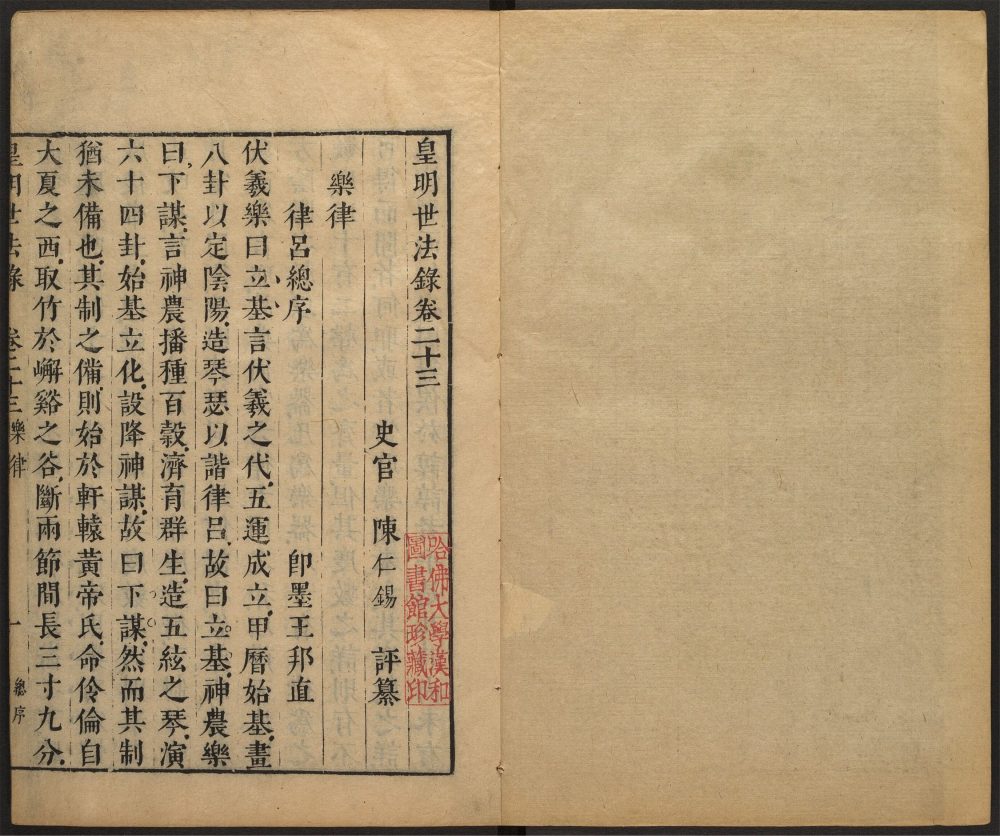 皇明世法錄卷二十三
史官 陳仁錫 評纂
樂律
律呂總序 卽墨王邦直
伏羲樂曰立基言伏羲之代五運成立甲曆始基畫
八卦以定陰陽造琴瑟以諧律呂故曰立基神農樂
曰下謀言神農播種百穀濟育群生造五絃之琴演
六十四卦始基立化設降神謀故曰下謀然而其制
猶未備也其制之備則始於軒轅黃帝氏命伶倫自
大夏之西取竹於嶰谿之谷斷兩節間長三寸九分
皇明世法錄 卷二十三 樂律 一 總序
哈佛大學漢和
圖書館珍藏印